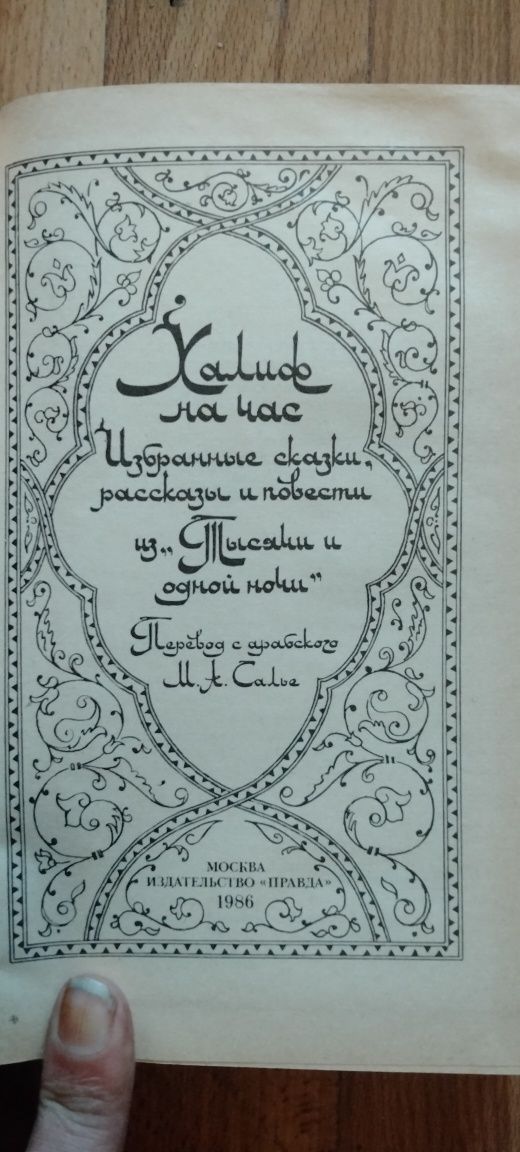 Халиф
на час
Избранные сказки,
рассказы и повести
из „Тысячи и
одной ночи“
Перевод с арабского
М. А. Салье
МОСКВА
ИЗДАТЕЛЬСТВО «ПРАВДА»
1986